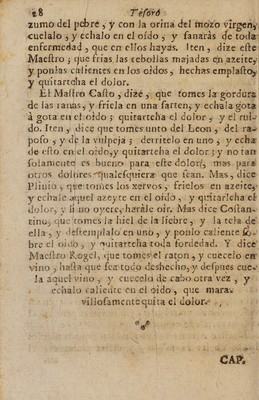 28 Tesoro
zumo del pebre, y con la orina del mozo virgen,
cuelalo, y echalo en el oído, y sanaràs de toda
enfermedad, que en ellos hayas. Iten, dize este
Maestro; que frias las cebollas majadas en azeite,
y ponlas calientes en los oídos, hechas emplasto,
y quitartcha el dolor.
El Mastro Casto, dizé, que tomes la gordura
de las ranas, y friela en una sarten, y echala gota
à gota en el oído; quitartcha el dolor, y el rui-
do. Iten, dice que tomes unto del Leon, del ra-
poso, y de la vulpeja; derritelo en uno, y echa
de esto en el oído, y quitartcha el dolor; y no tan
solamente es bueno para este dolor, mas para
otros dolores qualesquiera que sean. Mas, dice
Plinio, que tomes los xervos, frielos en azeite,
y echale aquel azeyte en el oído, y quitarlcha el
dolor, y si no oyere, harále oir. Mas dice Costan-
tino, que tomes la hiel de la liebre, y la tela de
ella, y destemplalo en uno, y ponlo caliente so-
bre el oído, y quitartcha toda sordedad. Y dice
Maestro Rogel, que tomes el raton, y cuecelo en
vino, hasta que sea todo deshecho, y despues cue-
la aquel vino, y cuecelo de cabo otra vez, y
echalo caliente en el oído, que mara-
villosamente quita el dolor.
CAP.